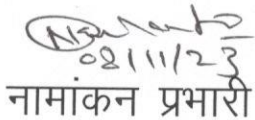 08/11/23
नामांकन प्रभारी